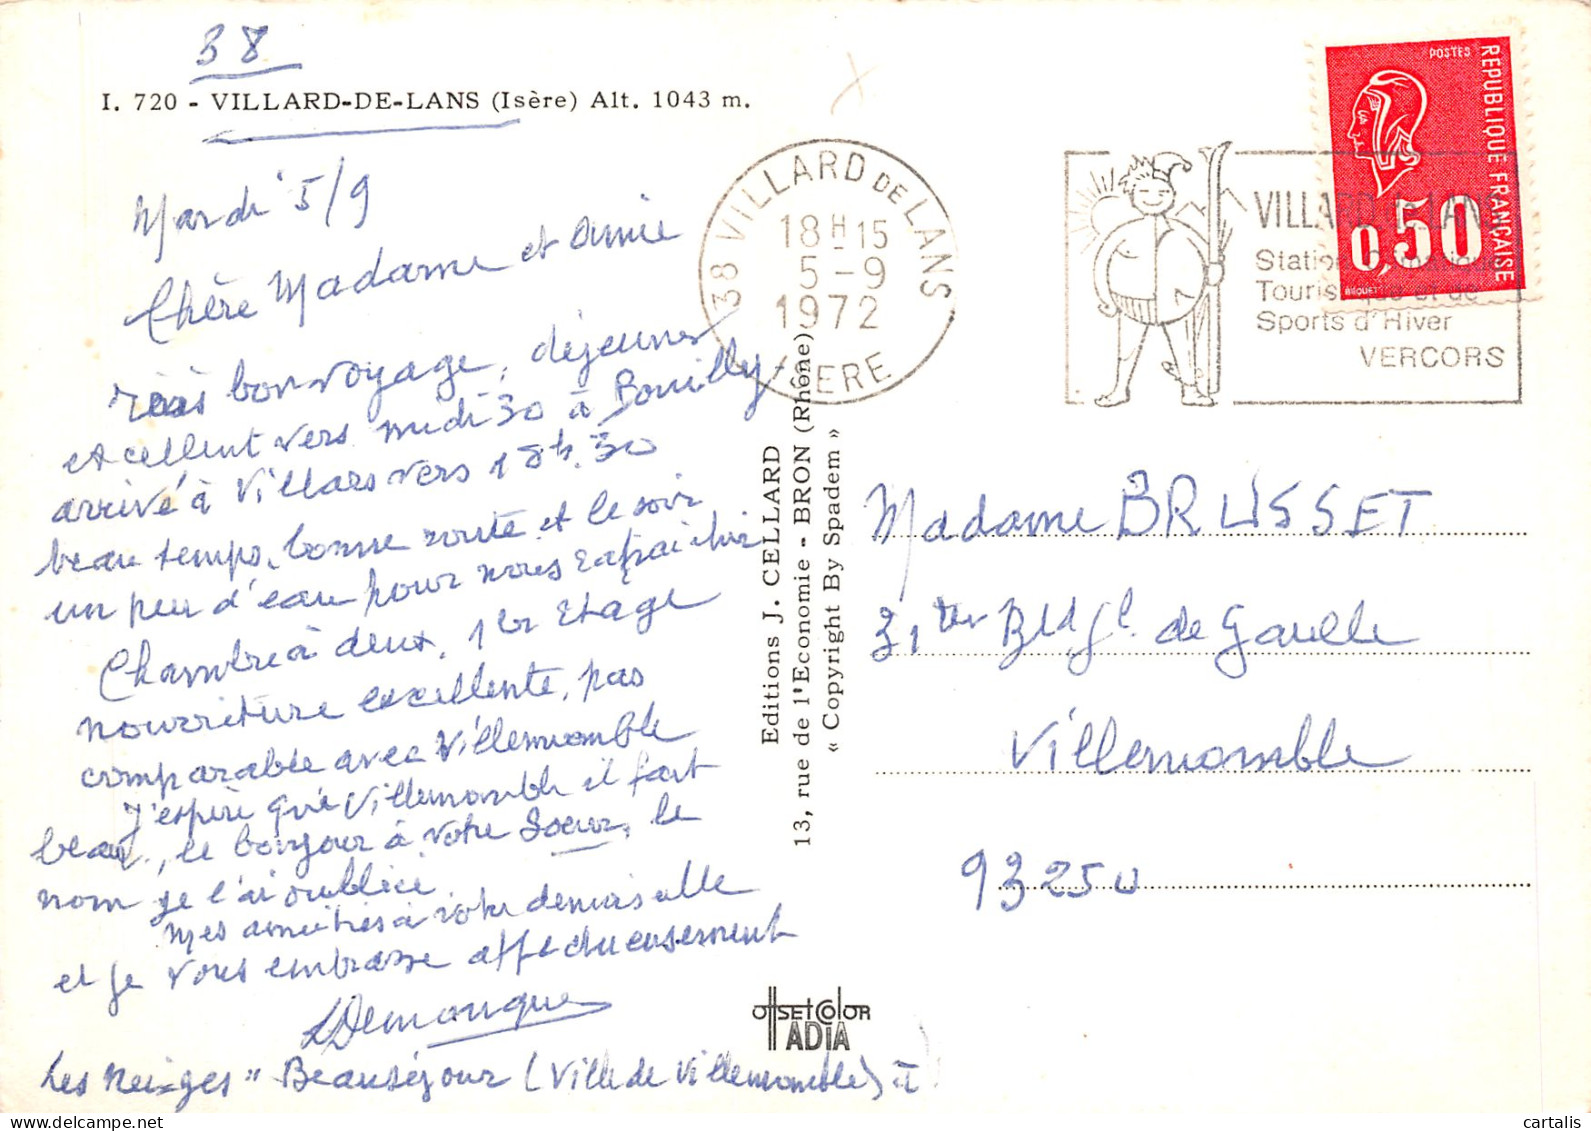 38
I. 720 - VILLARD-DE-LANS (Isère) Alt. 1043 m.
Mardi 5/9
Chère Madame et Amie
très bon voyage, déjeuner
excellent vers midi 30 à Pouilly -
arrivé à Villars vers 18h.30
beau temps, bonne route et le soir
un peu d'eau pour nous rafraichir
Chambre à deux, 1er Etage
nourriture excellente, pas
comparable avec Villemomble
J'espère qu'à Villemomble il fait
beau, le bonjour à votre Soeur, le
nom je l'ai oublié.
Mes amitiés à votre demoiselle
et je vous embrasse affectueusement
LDemongue
Les Neiges" Beauséjour (Ville de Villemomble)
Editions J. CELLARD
13, rue de l'Economie - BRON (Rhône)
« Copyright By Spadem »
OFFSET COLOR
ADIA
38 VILLARD DE LANS
18H15
5-9
1972
ISERE
VILLARD de LANS
Station Climatique
Touristique et de
Sports d'Hiver
VERCORS
POSTES
REPUBLIQUE FRANÇAISE
0,50
BEQUET
Madame BRUSSET
31ter Bld Gl de Gaulle
Villemomble
93250
cartalis
www.delcampe.net